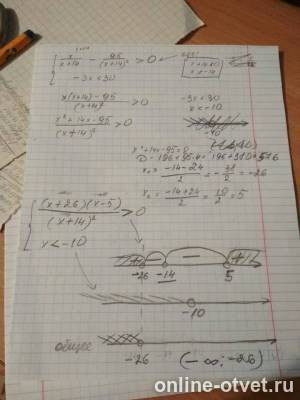 x/(x+14) - 95/(x+14)² > 0
x+14≠0
x≠-14
-3x<30
(x(x+14)-95)/(x+14)² > 0
-3x<30
x<-10
(x²+14x-95)/(x+14)² > 0
-10
x²+14x-95=0
D=196+95·4=196+380=576
x₁=(-14-24)/2=-38/2=-26
x₂=(-14+24)/2=10/2=5
((x+26)(x-5))/(x+14)² > 0
x<-10
+ - - +
-26 -14 5
-10
общее
-26 (-∞;-26)
online-otvet.ru